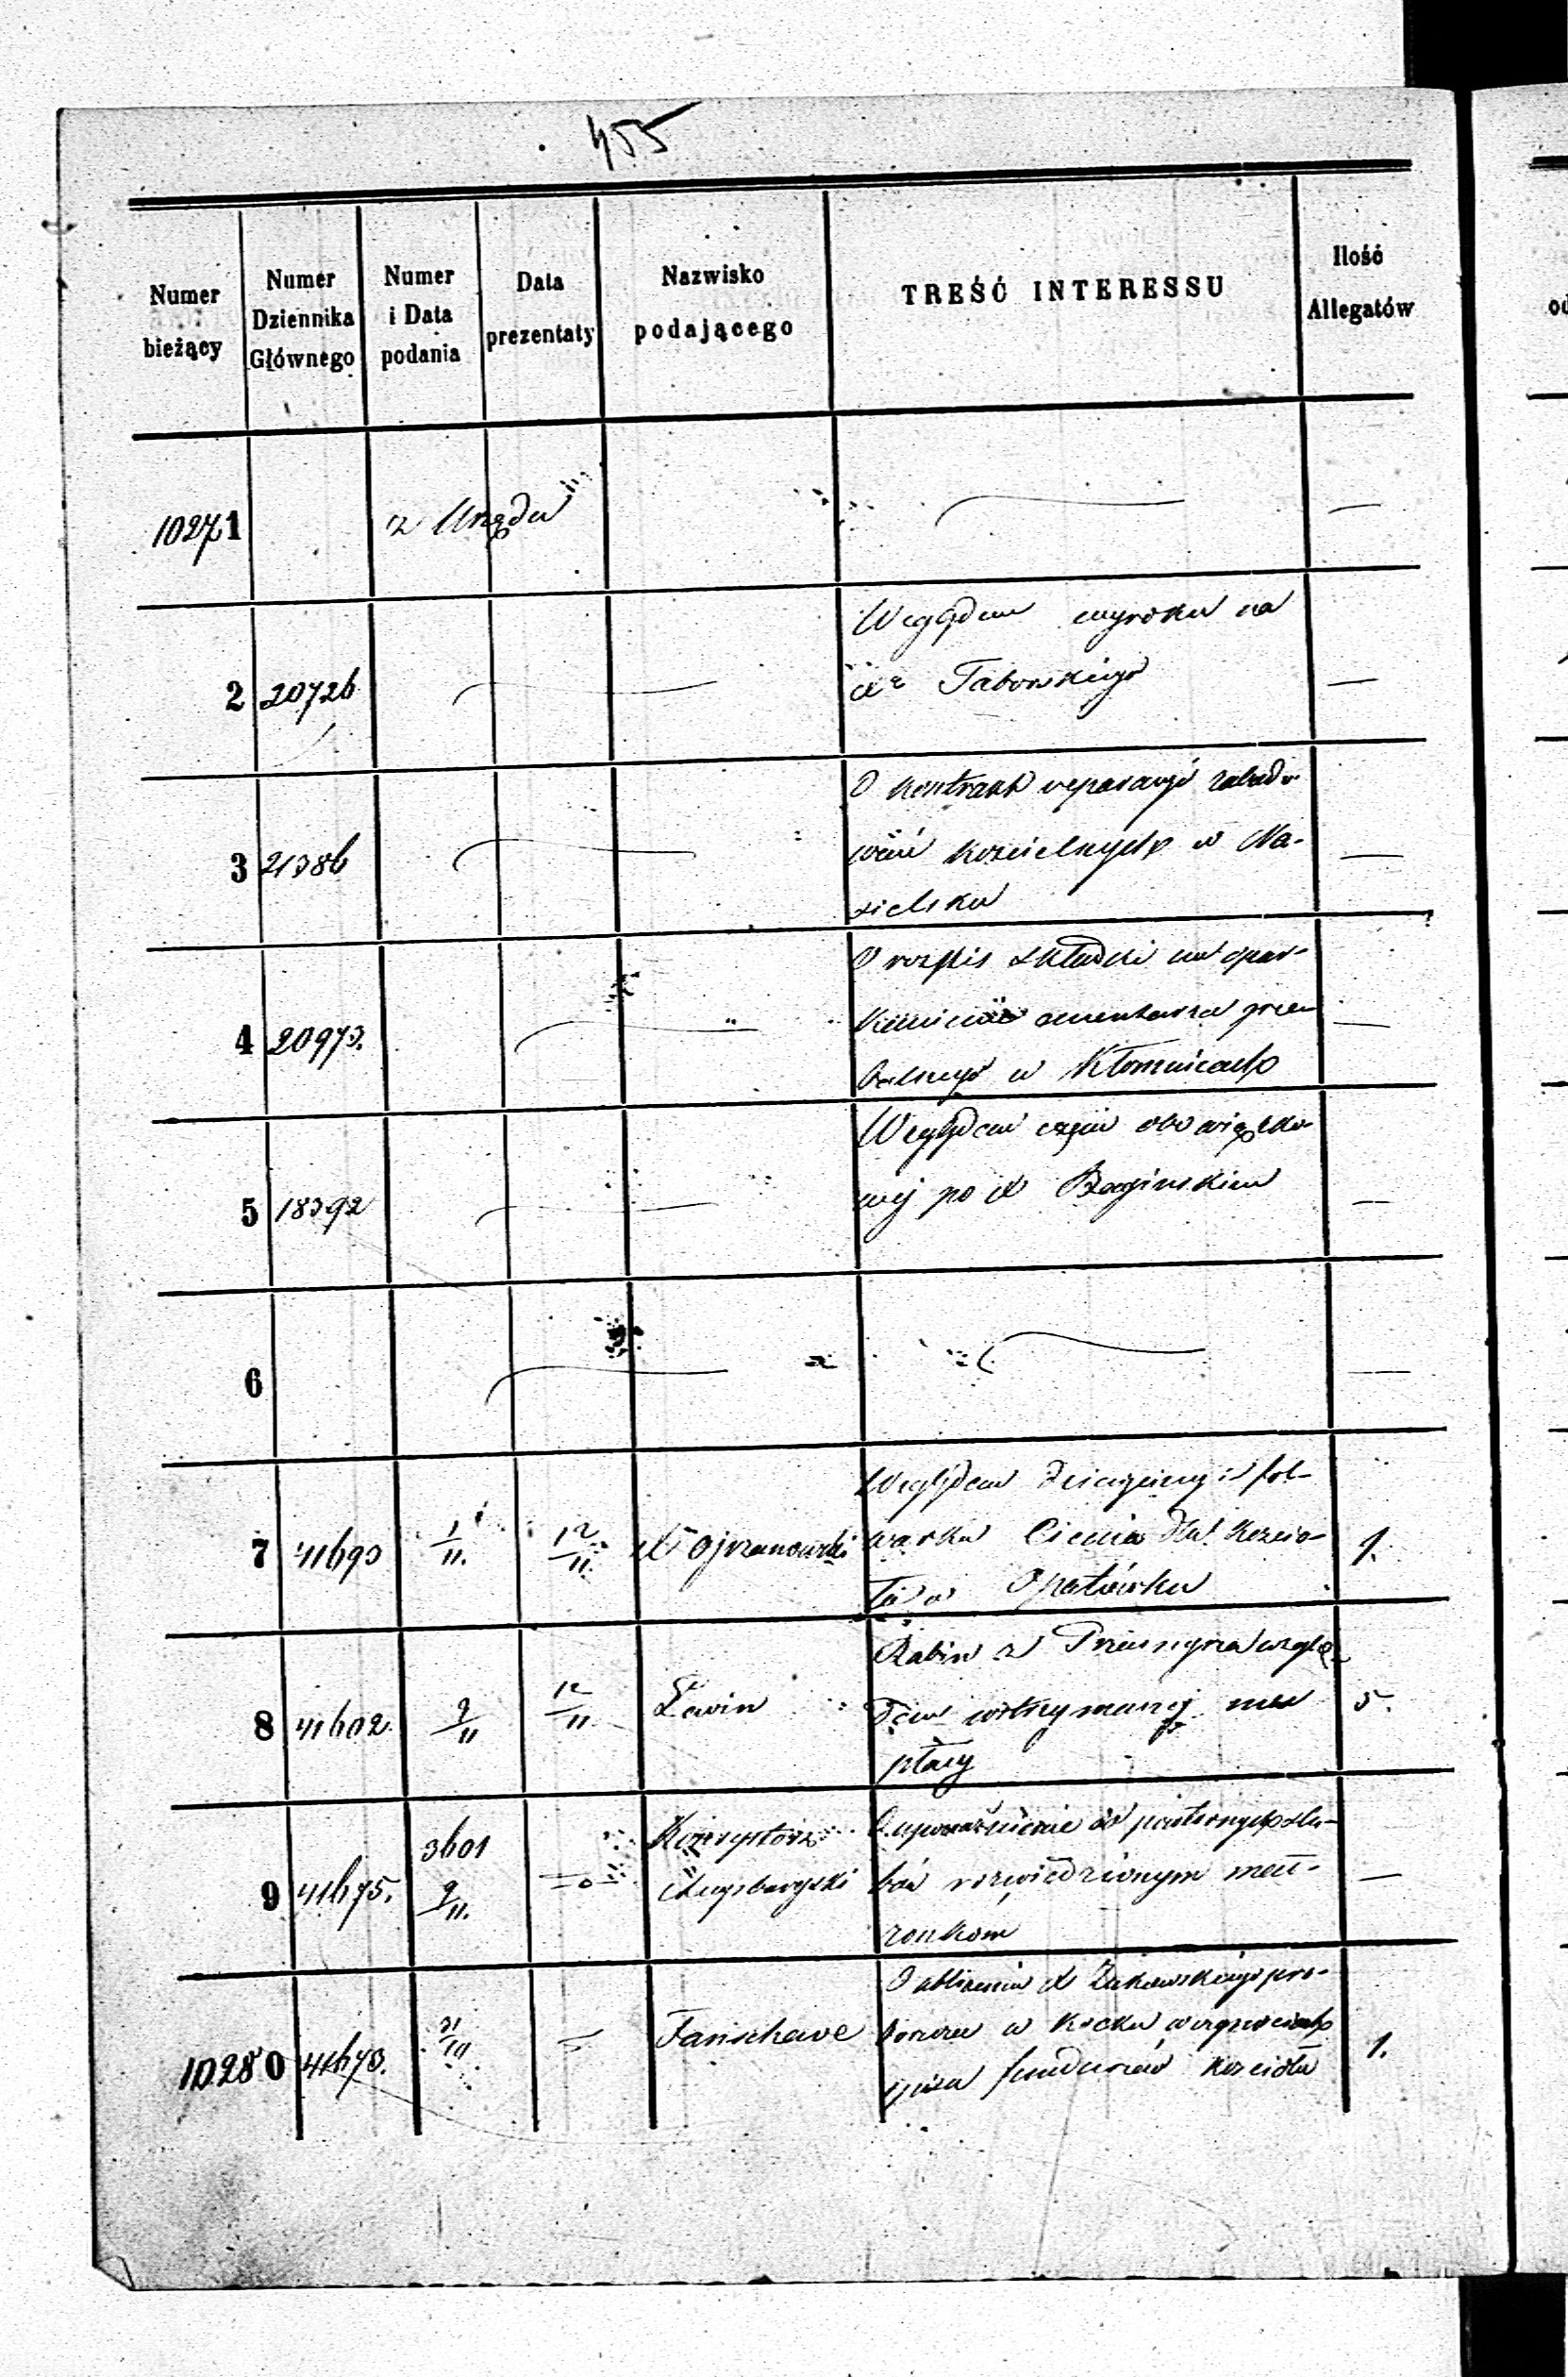 455
Numer bieżący
Numer Dziennika Głównego
Numer i Data podania
Data prezentaty
Nazwisko podającego
TREŚĆ INTERESSU
Ilość Allegatów
10271 z Urzędu — —
2 20726 — Względem wyroku na
Xa Taborskiego —
3 21386 — O kontrakt reparacyi zabudo
wań kościelnych w Na-
sielsku —
4 20973. — O rozpis składki na opar-
kanienie cmentarza grze
balnego w Kłomnicach —
5 18392 — Względem części obowiązko
wej po X Bagińskim —
6 — — —
7 41693 1/11. 12/11. X Ojrzanowski Względem dziesięciny z fol-
warku Cienia dla kościo-
ła w Opatówku 1.
8 41602 9/11 12/11 Lewin Rabin z Przasnysza wzglę-
dem wstrzymanej mu
płacy 5.
9 41675. 3601 9/11. =o= Konsystorz Augsburgski O upoważnienie do powtórnych ślu-
bów rozwiedzionym mał-
żonkom —
10280 41670. 31/10 = Fanschave O X Żukowskiego pro-
boszcza w Kocku
funduszów kościoła 1.